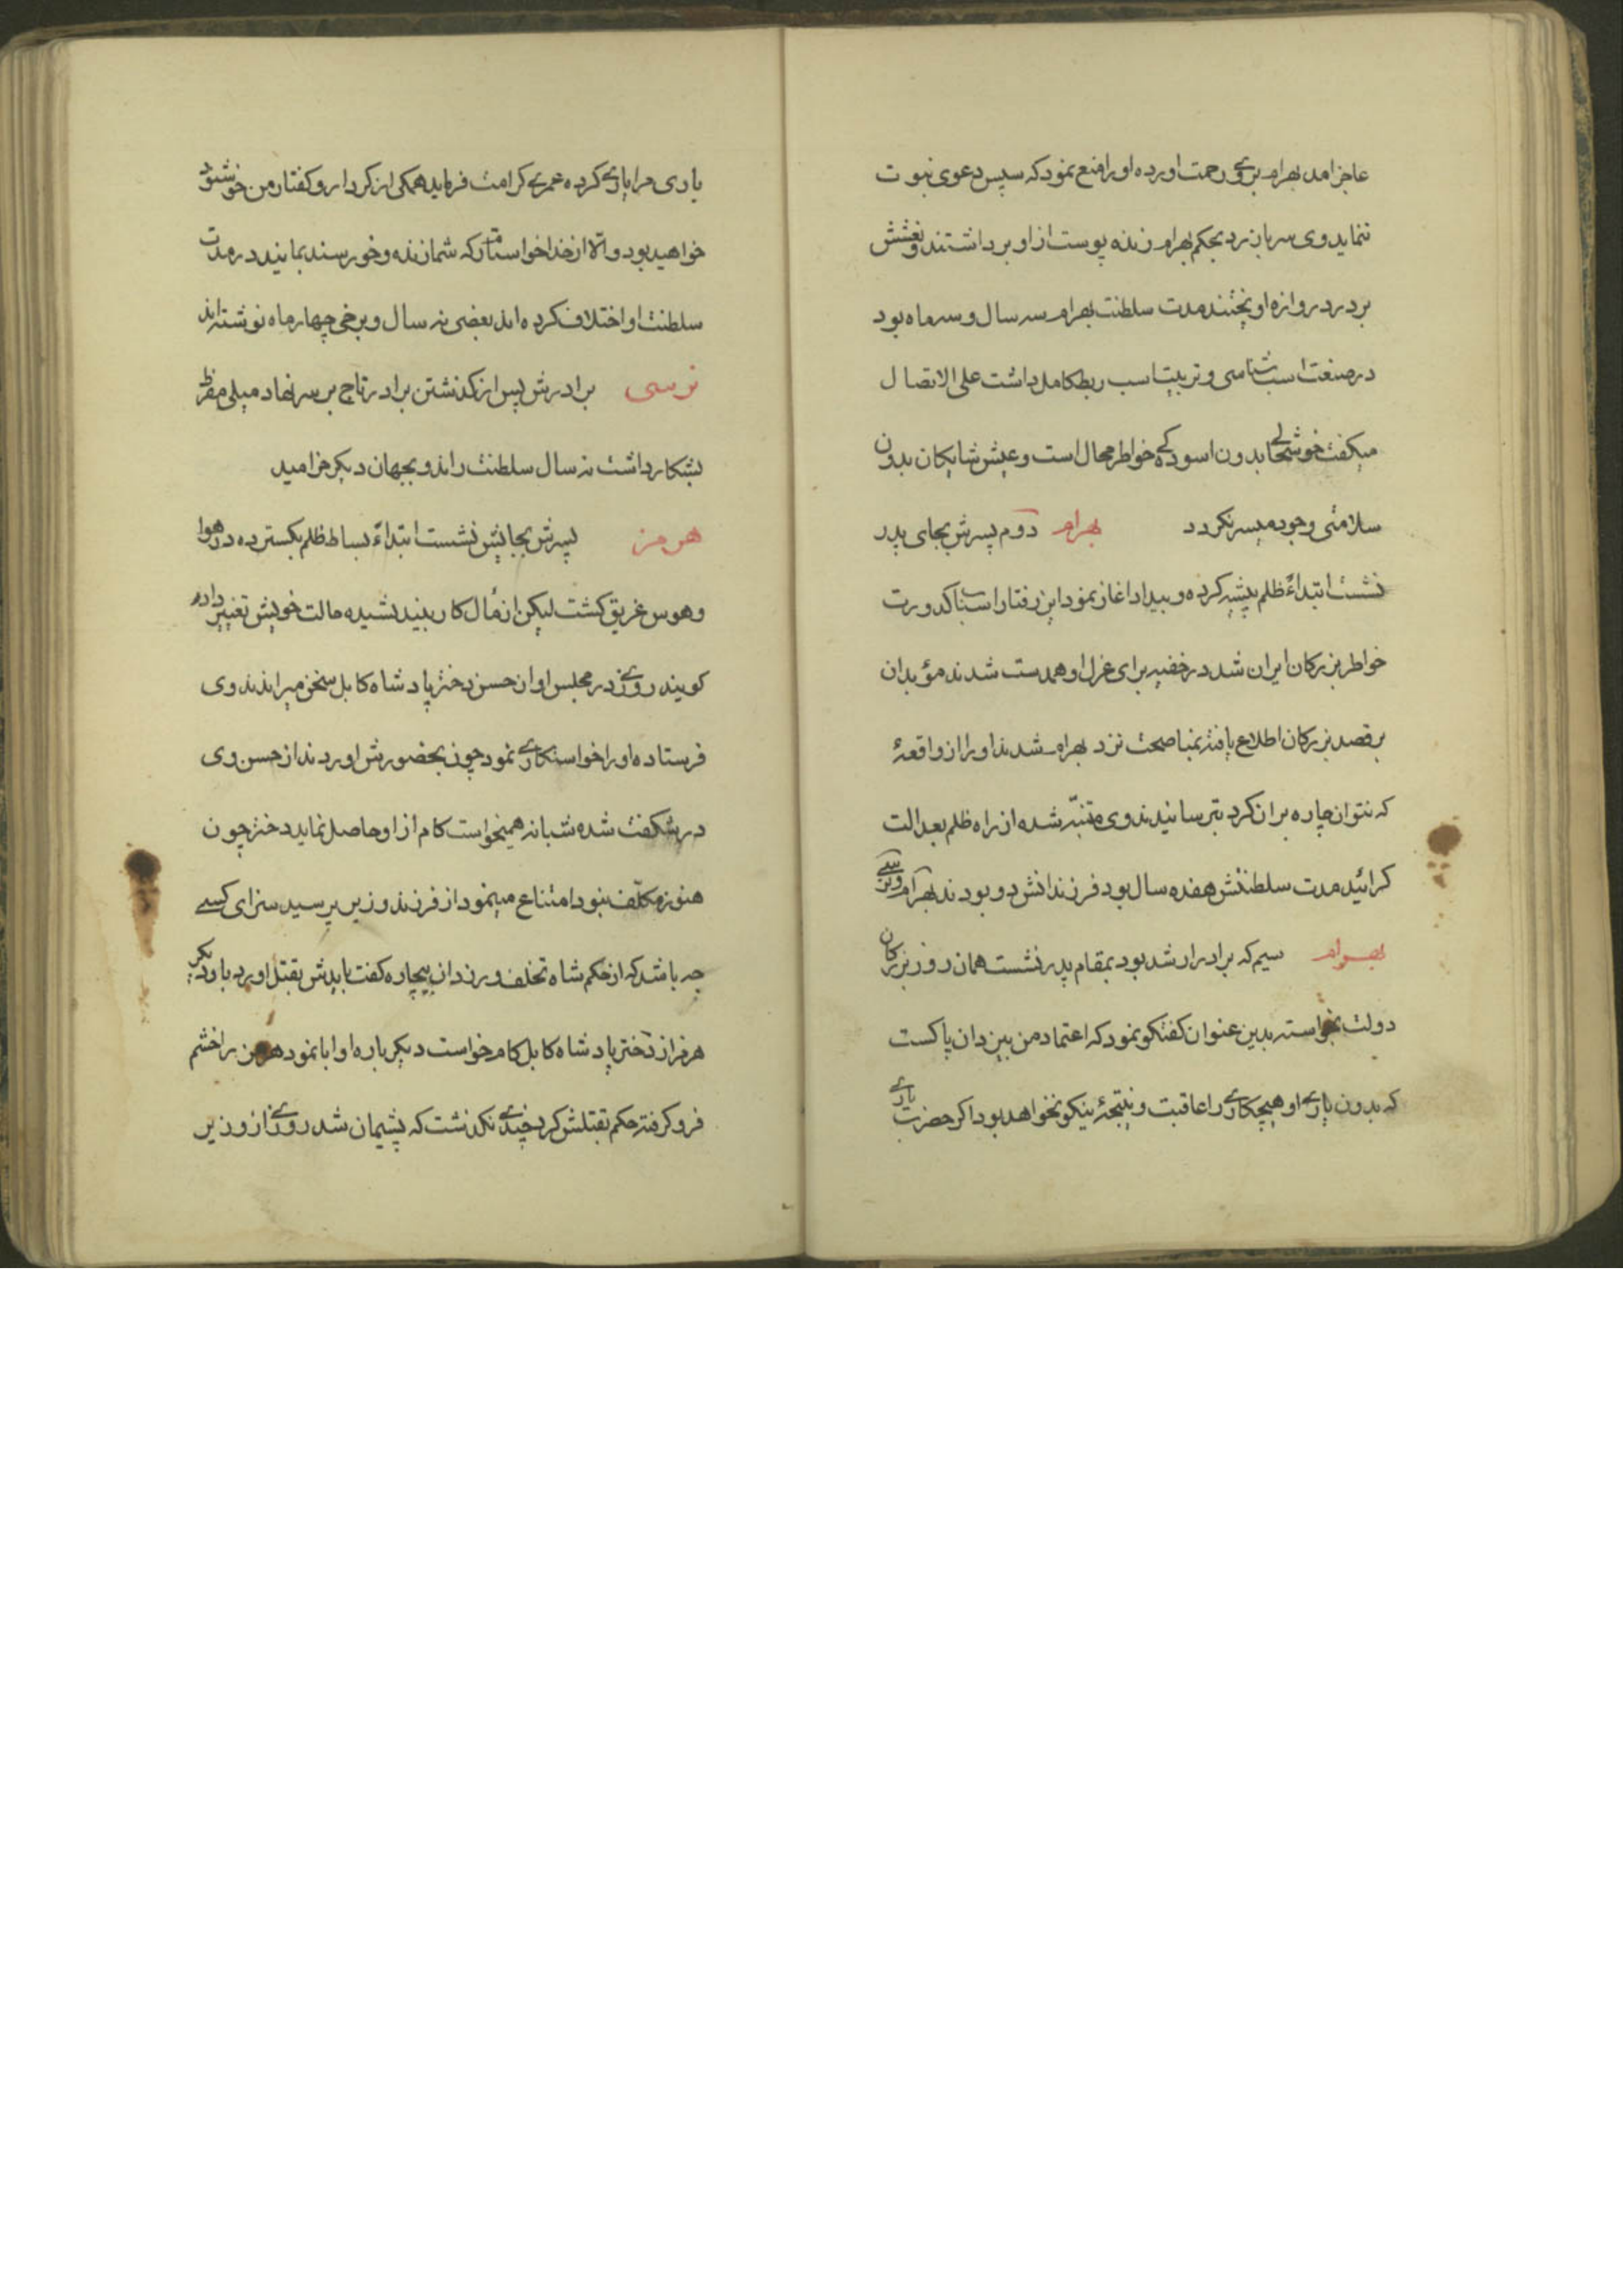 عاجز امد بهرام بروی رحمت اورده او را منع نمود که سپس دعوی نبوت
ننماید وی سر باز زد بحکم بهرام زنده پوست از او برداشتند و نعشش
بردر دروازه اویختند مدت سلطنت بهرام سه سال و سه ماه بود
در صنعت اسب شناسی و تربیت اسب ربط کامل داشت علی الاتصال
میکفت خوشحالی بدون اسودکی خواطر محال است و عیش شایکان بدون
سلامتی وجود میسر نکردد بهرام دوم پسرش بجای پدر
نشست ابتداءً ظلم پیشه کرده و بیداد اغاز نمود این رفتار اسباب کدورت
خواطر بزرکان ایران شد در خفیه برای عزل او همدست شدند مؤبدان
بر قصد بزرکان اطلاع یافته بمناصحت نزد بهرام شدند او را از واقعهٔ
که نتوان چاره بر ان کرد بترسانیدند وی متنبّه شده از راه ظلم بعدالت
کرائید مدت سلطنتش هفده سال بود فرزندانش دو بودند بهرام و نرسی
بهرام سیم که برادر ارشد بود بمقام پدر نشست همان روز بزرکان
دولت بخواسته بدین عنوان کفتکو نمود که اعتماد من بیزدان پاکست
که بدون یاری او هیچکاری را عاقبت و نتیجهٔ نیکو نخواهد بود اکر حضرت باری
یاری مرا یاری کرده عمری کرامت فرماید همکی از کردار و کفتار من خوشنود
خواهید بود والّا از خدا خواستارم که شما زنده و خورسند بمانید در مدت
سلطنت او اختلاف کرده اند بعضی نه سال و برخی چهار ماه نوشته اند
نرسی برادرش پس از کذشتن برادر تاج بر سر نهاد میلی مفرط
بشکار داشت نه سال سلطنت راند و بجهان دیکر خرامید
هرمز پسرش بجایش نشست ابتداءً بساط ظلم بکسترده در هوا
و هوس غریق کشت لیکن از مٰال کار بیندیشیده حالت خویش تغییر داد
کویند روزی در مجلس او از حسن دختر پادشاه کابل سخن میراندند وی
فرستاده او را خواستکاری نمود چون بحضورش اوردند از حسن وی
در شکفت شده شبانه همیخواست کام از او حاصل نماید دختر چون
هنوز مکلّف نبود امتناع مینمود از فرزند وزیر پرسید سزای کسی
چه باشد که از حکم شاه تخلف ورزد ان بیچاره کفت بایدش بقتل اورد بار دیکر
هرمز از دختر پادشاه کابل کام خواست دیکر باره او ابا نمود هرمز را خشم
فرو کرفته حکم بقتلش کرد چندی نکذشت که پشیمان شد روزی از وزیر